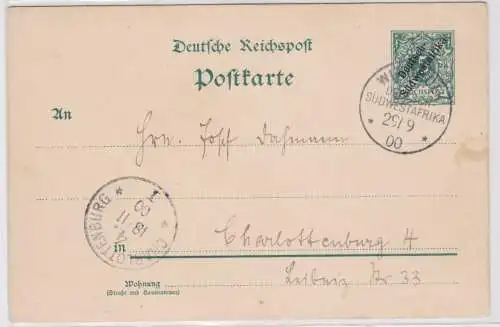 Deutsche Reichspost
Postkarte
Deutsch-
Südwestafrika
SÜDWESTAFRIKA
29/9
00
An
Hrn. Josef Dahmann
CHARLOTTENBURG
18.11
00
in
Charlottenburg 4
Leibniz Str 33
Wohnung
(Straße und Hausnummer)